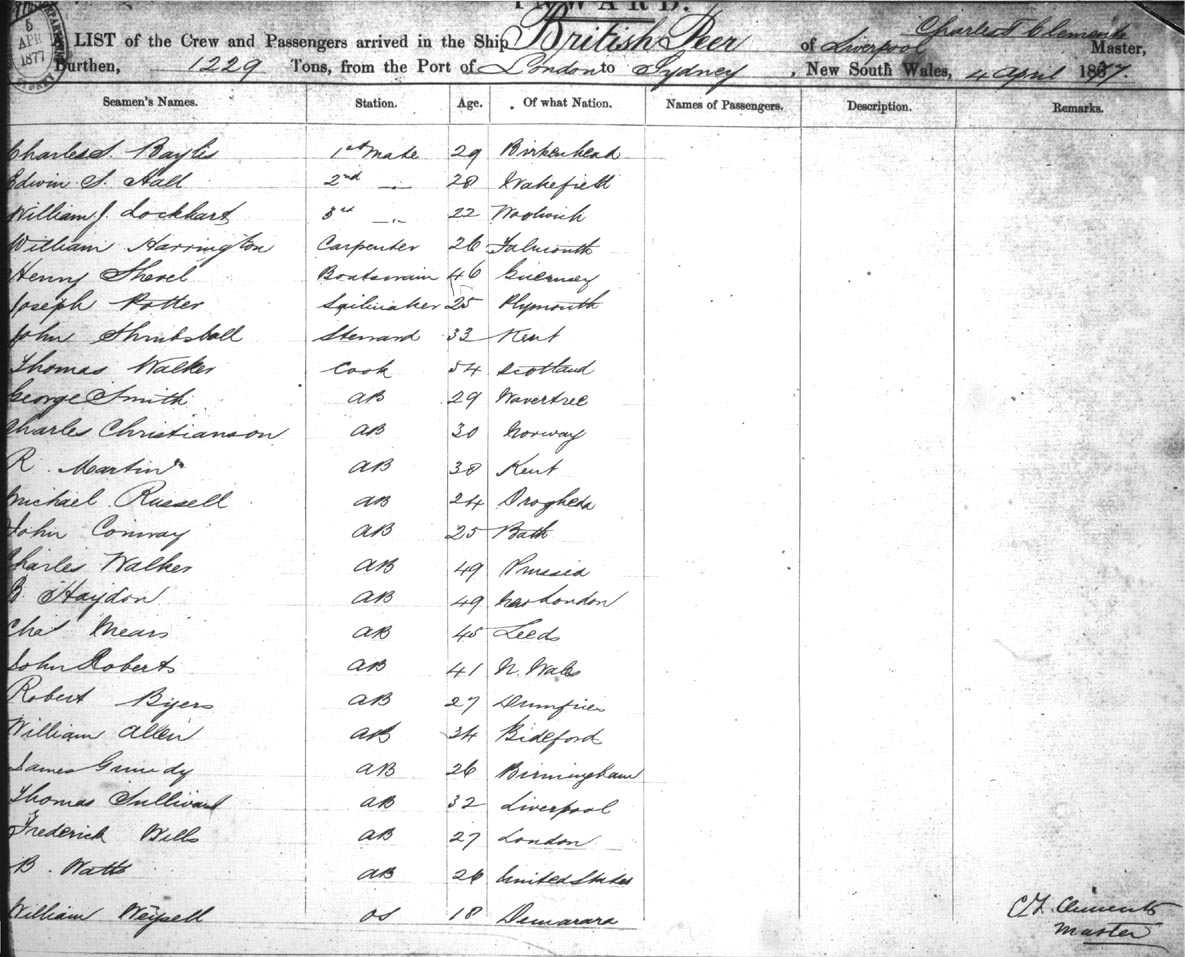 INWARD.
5
APR
1877
Charles T Clements
LIST of the Crew and Passengers arrived in the Ship British Peer of Liverpool Master,
Burthen, 1229 Tons, from the Port of London to Sydney, New South Wales, 4 April 1877.
Seamen's Names. Station. Age. Of what Nation. Names of Passengers. Description. Remarks.
Charles S. Bayliss 1st Mate 29 Birkenhead
Edwin S. Hall 2nd -"- 28 Wakefield
William J. Lockhart 3rd -"- 22 Woolwich
William Harrington Carpenter 26 Falmouth
Henry Shevel Boatswain 46 Guernsey
Joseph Potter Sailmaker 25 Plymouth
John Shrubsall Steward 33 Kent
Thomas Walker Cook 54 Scotland
George Smith AB 29 Wavertree
Charles Christianson AB 30 Norway
R. Martin AB 38 Kent
Michael Russell AB 24 Drogheda
John Conway AB 25 Bath
Charles Walker AB 49 Prussia
B. Haydon AB 49 New London
Cha Mears AB 45 Leeds
John Roberts AB 41 N. Wales
Robert Byers AB 27 Dumfries
William Allen AB 34 Bideford
James Grundy AB 26 Birmingham
Thomas Sullivan AB 32 Liverpool
Frederick Wills AB 27 London
B. Watts AB 26 United States
William OS 18 Demarara
C.T. Clements
Master